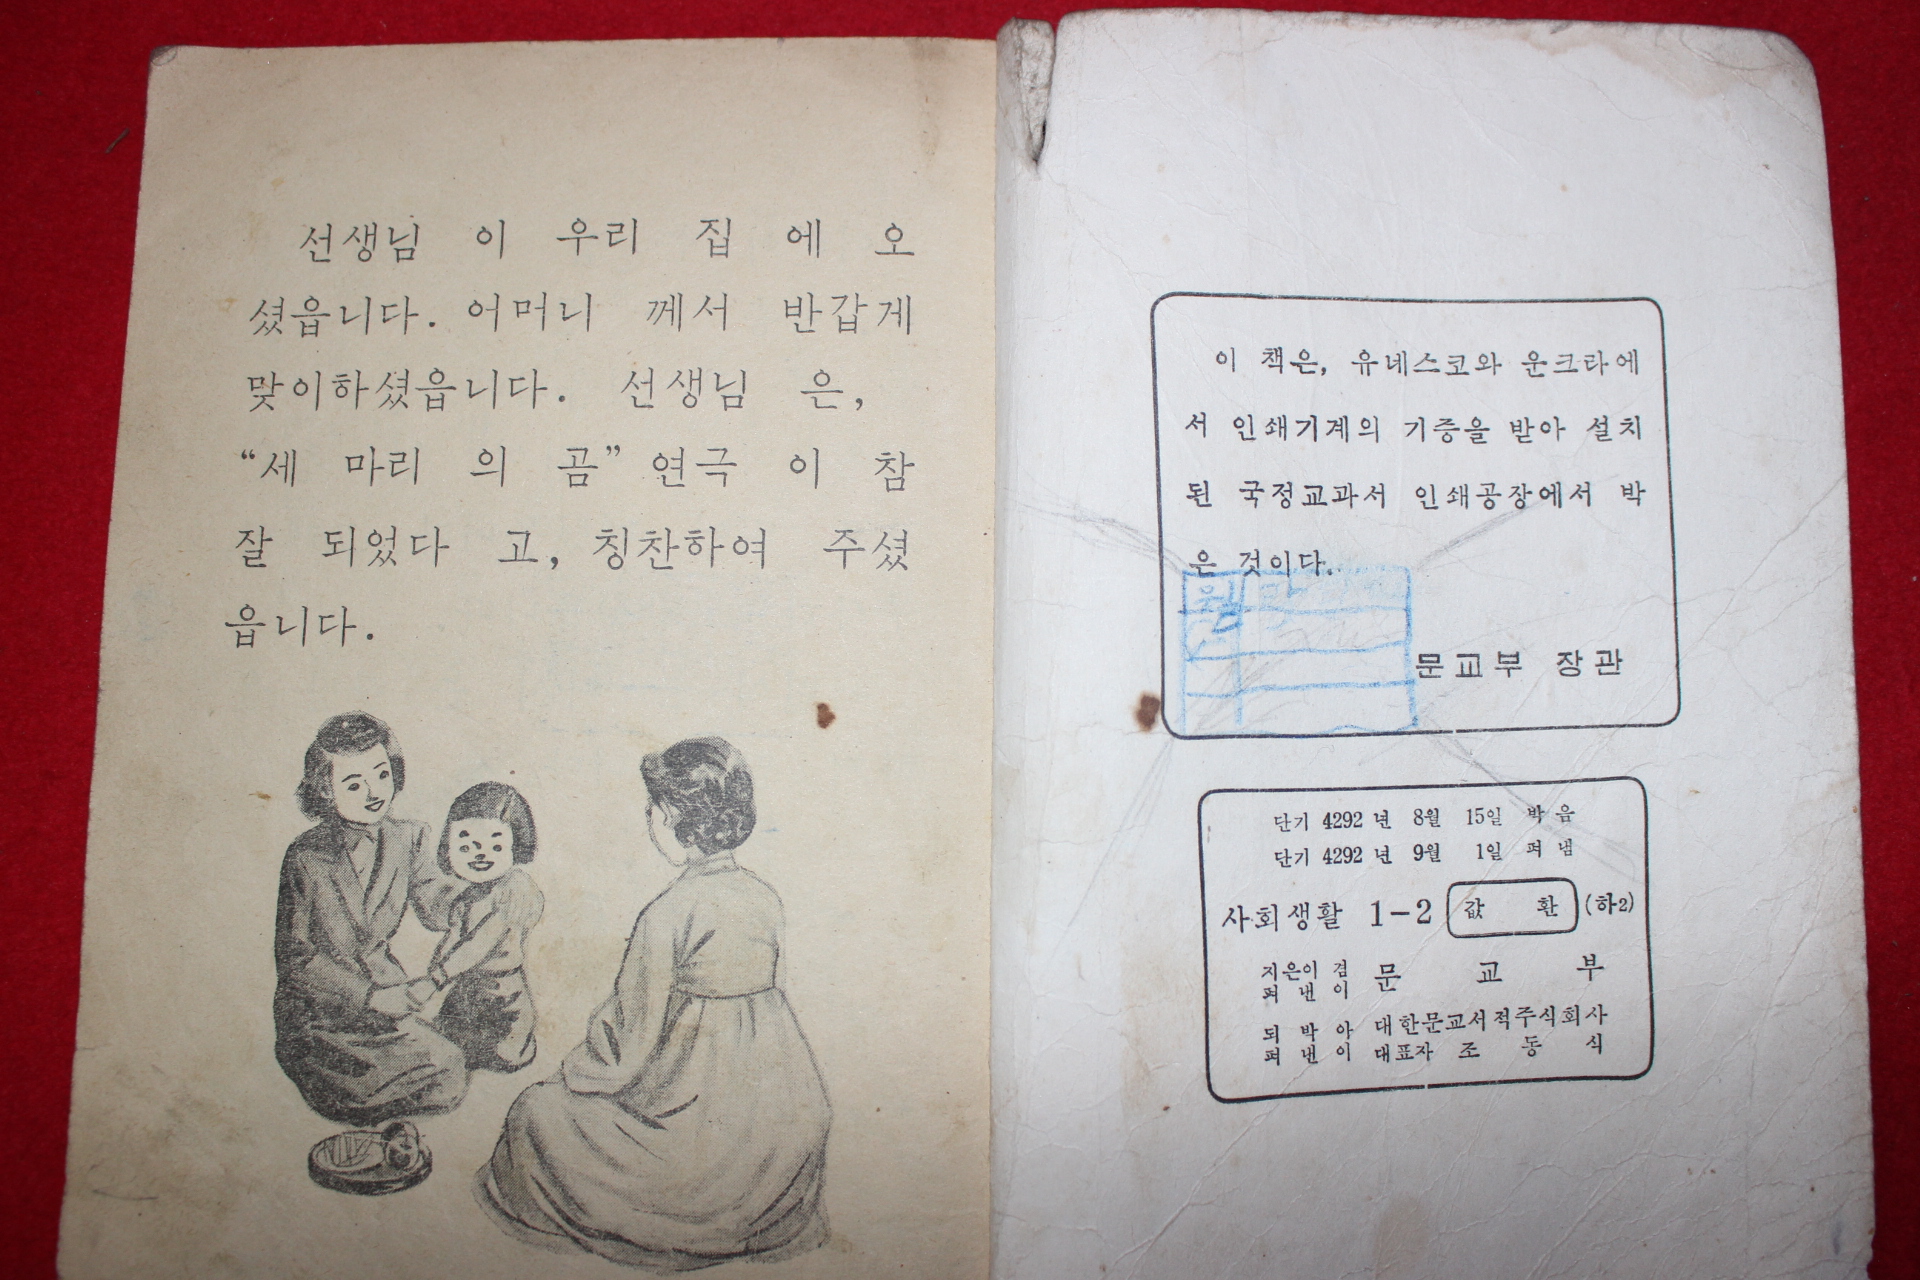 선생님 이 우리 집 에 오
셨읍니다. 어머니 께서 반갑게
맞이하셨읍니다. 선생님 은,
“세 마리 의 곰” 연극 이 참
잘 되었다 고, 칭찬하여 주셨
읍니다.
이 책은, 유네스코와 운크라에
서 인쇄기계의 기증을 받아 설치
된 국정교과서 인쇄공장에서 박
은 것이다.
문교부 장관
단기 4292 년 8월 15일 박음
단기 4292 년 9월 1일 펴냄
사회생활 1-2 값 환 (하2)
지은이 겸 문 교 부
펴 낸 이
되 박 아 대한문교서적주식회사
펴 낸 이 대표자 조 동 식